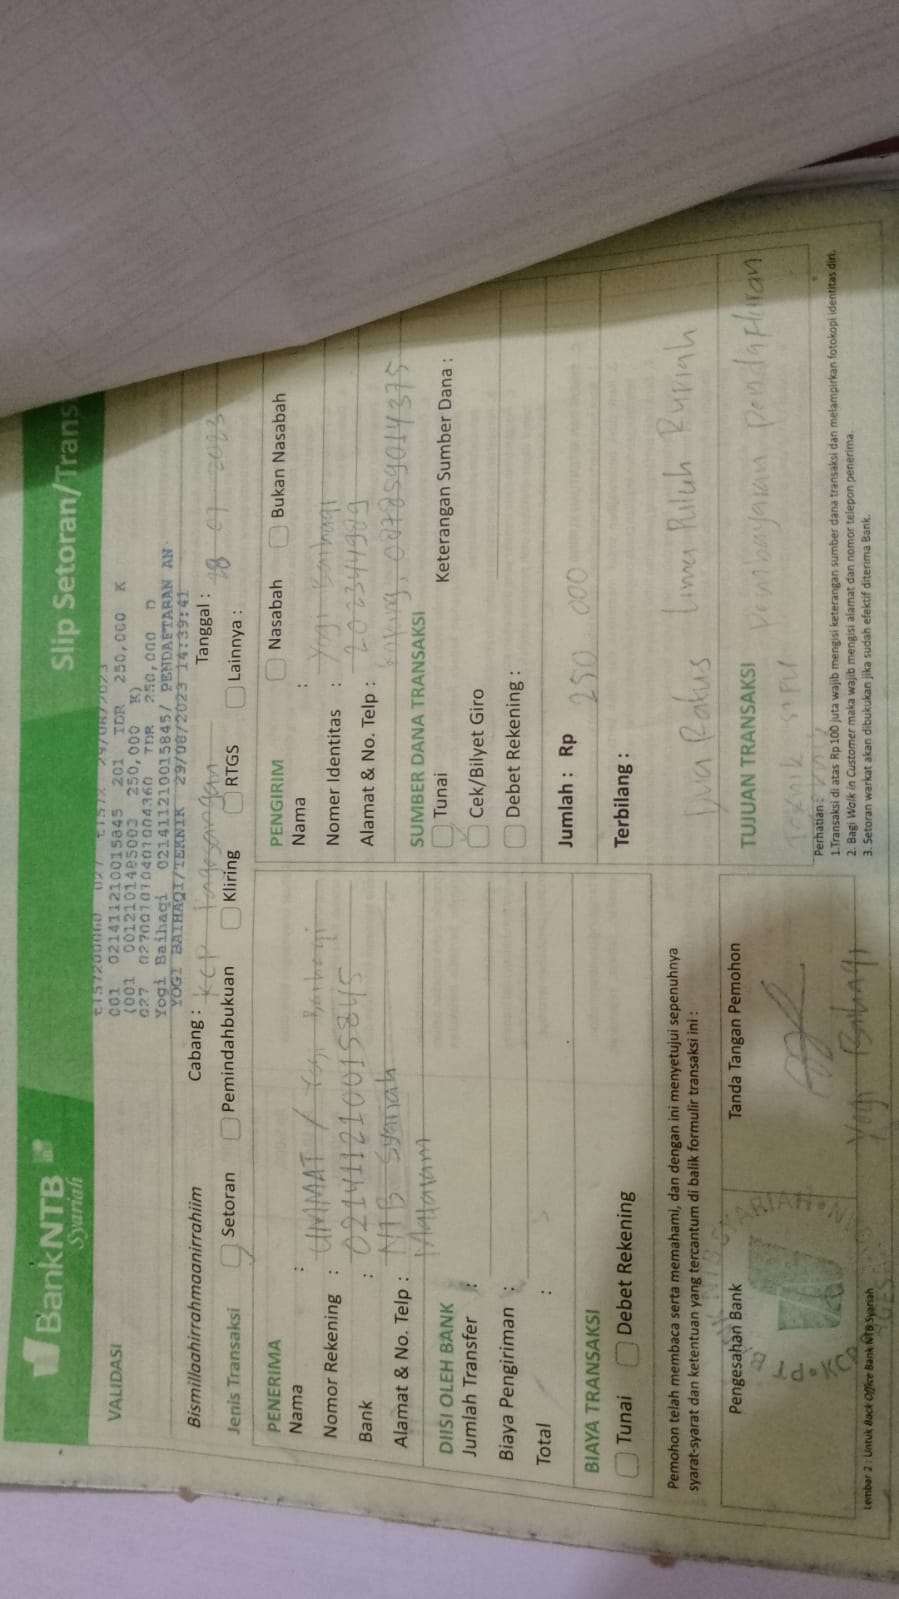 BankNTB
Syariah
Slip Setoran/Trans
VALIDASI
001 021411210015845 201 IDR 250,000 K
(001 0012101485003 250,000 K)
027 0270010104001004360 IDR 250,000 D
Yogi Baihaqi 021411210015845/ PENDAFTARAN AN
YOGI BAIHAQI/TEKNIK 29/08/2023 14:39:41
Bismillaahirrahmaanirrahiim
Cabang : KCP Pagesangan
Tanggal :
Jenis Transaksi
Setoran
Pemindahbukuan
Kliring
RTGS
Lainnya :
PENERIMA
Nama : UMMAT / Yogi Baihaqi
Nomor Rekening : 021411210015845
Bank : NTB Syariah
Alamat & No. Telp : Mataram
DIISI OLEH BANK
Jumlah Transfer :
Biaya Pengiriman :
Total :
BIAYA TRANSAKSI
Tunai
Debet Rekening
Pemohon telah membaca serta memahami, dan dengan ini menyetujui sepenuhnya
syarat-syarat dan ketentuan yang tercantum di balik formulir transaksi ini :
Pengesahan Bank
Tanda Tangan Pemohon
Yogi Baihaqi
Lembar 2 : Untuk Back Office Bank NTB Syariah
PENGIRIM
Nasabah
Bukan Nasabah
Nama : Yogi Baihaqi
Nomer Identitas : 202344909
Alamat & No. Telp :
SUMBER DANA TRANSAKSI
Tunai
Keterangan Sumber Dana :
Cek/Bilyet Giro
Debet Rekening :
Jumlah : Rp 250 000
Terbilang :
Dua Ratus Lima Puluh Rupiah
TUJUAN TRANSAKSI
Pembayaran pendaftaran
Teknik
Perhatian :
1.Transaksi di atas Rp 100 juta wajib mengisi keterangan sumber dana transaksi dan melampirkan fotokopi identitas diri.
2. Bagi Walk in Customer maka wajib mengisi alamat dan nomor telepon penerima.
3. Setoran warkat akan dibukukan jika sudah efektif diterima Bank.